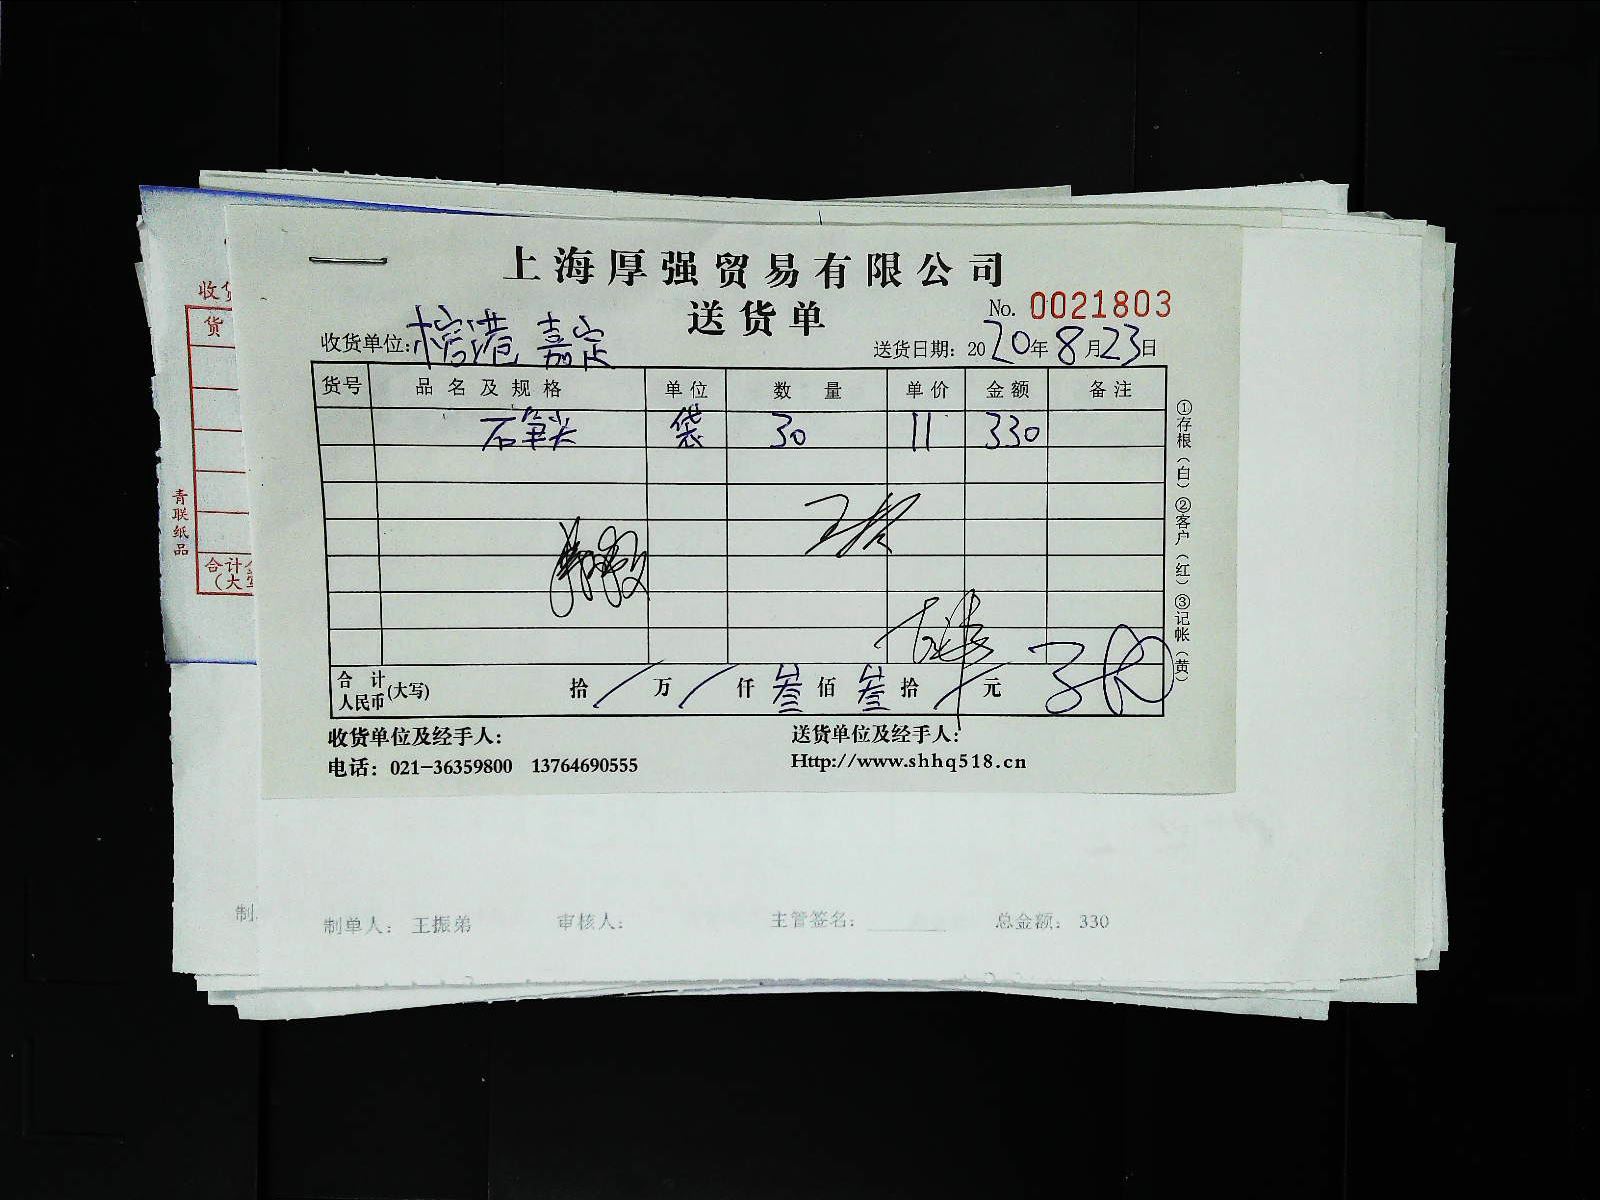 上海厚强贸易有限公司
送货单
No. 0021803
收货单位: 榕港 嘉定
送货日期: 2020年8月23日
货号 品名及规格 单位 数量 单价 金额 备注
石笋尖 袋 30 11 330
合计人民币(大写) 拾/万/仟叁佰叁拾/元
收货单位及经手人:
送货单位及经手人:
电话: 021-36359800 13764690555
Http://www.shhq518.cn
①存根(白)②客户(红)③记帐(黄)
收货
货
青联纸品
合计
(大写
制
制单人: 王振弟 审核人: 主管签名: 总金额: 330